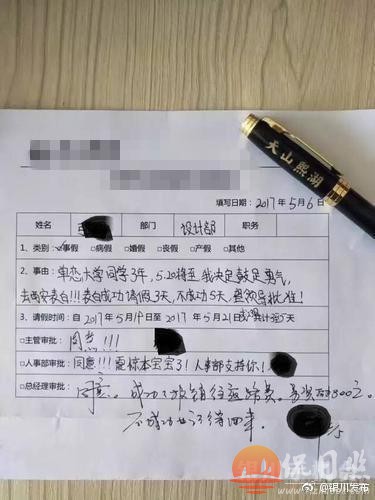 天山熙湖
填写日期：2017年5月6日
姓名 部门 设计部 职务
1、类别：☑事假 □病假 □婚假 □丧假 □产假 □其他
2、事由：单恋大学同学3年，5.20将至，我决定鼓足勇气，
去西安表白!!!表白成功请假3天，不成功5天，望领导批准！
3、请假时间：自2017年5月19日至2017年5月21日 共计 天
□主管审批：同意!!!
□人事部审批：同意!!!震惊本宝宝了！人事部支持你！
□总经理审批：同意。成功了报销往返路费。
不成功也记得回来。
@银川发布